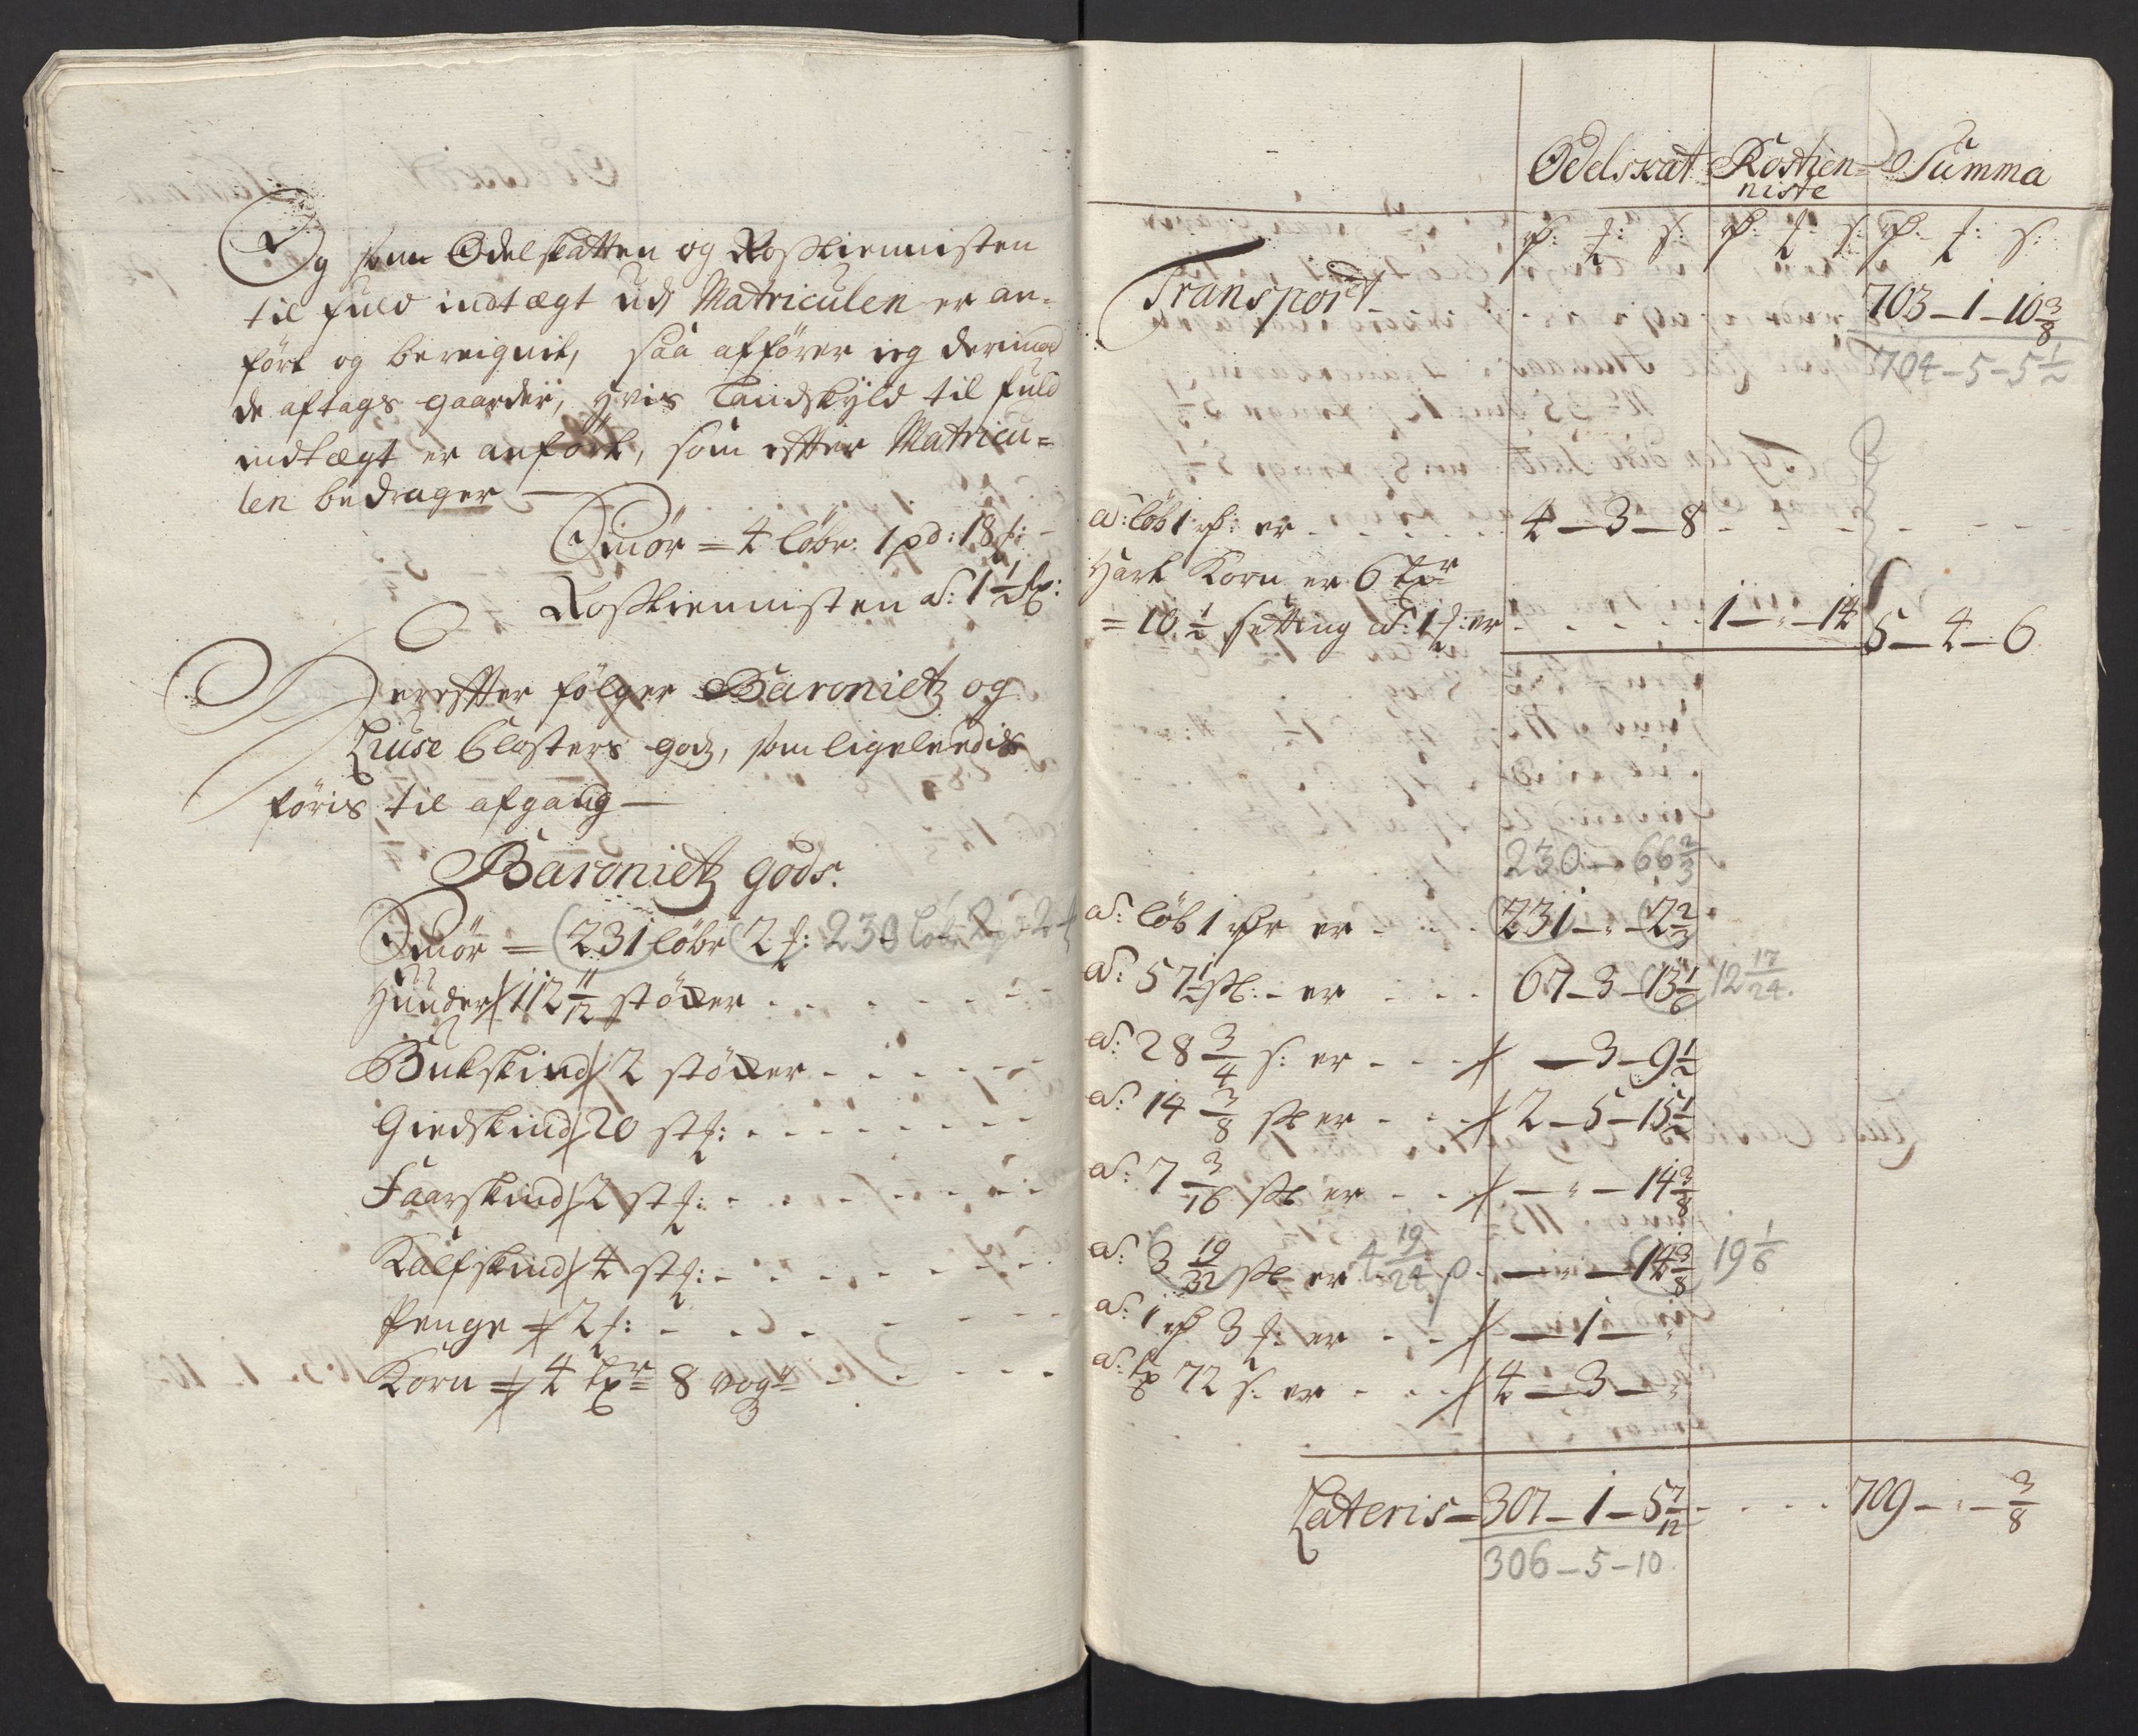 Og som Odelskatten og Rostiennisten
til fuld indtægt udj Matriculen er an-
ført og bereignit, saa afförer ieg derimod
de aftags gaarder, hvis Landskyld til fuld
indtægt er anfört, som efter Matricu=
len bedrager —
Smör = 4 löber 1 pd: 18 f:
Rostiennisten a: 1 1/2
Derefter fölger Baronietz og
Liuse Closters godz, som ligeleedis
föris til afgang —
Baronietz gods.
Smör = 231 löber 2 f: 230 löber 2 pd 2 f
Huuder 112 11/12 stöcker
Bukskind 2 stöcker
Giedskind 20 st:
Faarskind 2 st:
Kalfskind 4 st:
Penge 2 f:
Korn 4 tr 8 vogr
Odelskat Rostien= Summa
niste
Transport 703 — 1 — 10 3/8
704 — 5 — 5 1/2
a: löb 1 er 4 — 3 — 8
Hart Korn er 6 tr
= 10 1/2 setting a: 1 f: er 1 — " — 14 5 — 4 — 6
230 — 66 2/3
a: löb 1 er 231 — " — 2 2/3
a: 57 1/2 sk: er 67 — 3 — 13 1/6 12 17/24
a: 28 3/4 s: er — 3 — 9 1/2
a: 14 3/8 sk er 2 — 5 — 15 1/2
a: 7 3/16 sk er — " — 14 3/8
a: 3 19/32 sk er 4 19/24 — " — 14 3/8 19 1/6
a: 1 3 f: er — 1 — "
a: 72 s: er 4 — 3 — "
Lateris — 307 — 1 — 5 7/12 709 — " — 3/8
306 — 5 — 10